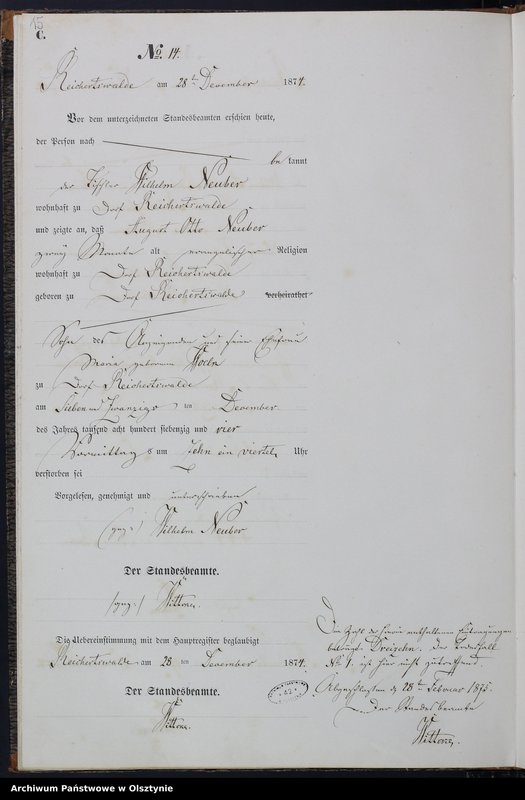 15
C.
No. 14.
Reichertswalde am 28ten December 1874.
Vor dem unterzeichneten Standesbeamten erschien heute,
der Person nach
bekannt
der Tischler Wilhelm Neuber
wohnhaft zu Dorf Reichertswalde
und zeigte an, daß August Otto Neuber
zwey Monate alt evangelischer Religion
wohnhaft zu Dorf Reichertswalde
geboren zu Dorf Reichertswalde verheirathet
Sohn des Anzeigenden und seiner Ehefrau
Maria geborenen
zu Dorf Reichertswalde
am Sieben und Zwanzigs ten December
des Jahres tausend acht hundert siebenzig und vier
Vormittag s um zehn ein viertel Uhr
verstorben sei
Vorgelesen, genehmigt und unterschrieben
(gez:) Wilhelm Neuber
Der Standesbeamte.
/gez:/
Die Uebereinstimmung mit dem Hauptregister beglaubigt
Reichertswalde am 28 ten December 1874.
Der Standesbeamte.
Die Zahl der hierin enthaltenen Eintragungen
beträgt Dreizehn. Der
No 1. ist hier nicht
Abgeschlossen d 28ten Februar 1875.
Der Standesbeamte
Archiwum Państwowe w Olsztynie